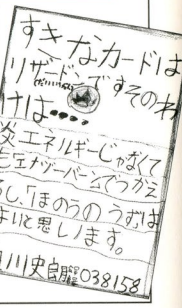 すきなカードは
リザードンですそのわ
けは‥‥
炎エネルギーじゃなくて
もエナジーバーンでつかえ
るし、「ほのうのうずは
よいと思います。
川史良 038158